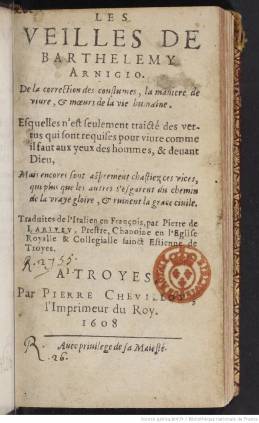 LES
VEILLES DE
BARTHELEMY
ARNIGIO.
De la correction des coustumes, la maniere de
viure, & mœurs de la vie humaine.
Esquelles n'est seulement traicté des ver-
tus qui sont requises pour viure comme
il faut aux yeux des hommes, & deuant
Dieu,
Mais encores sont asprement chastiez ces vices,
qui plus que les autres s'esgarent du chemin
de la vraye gloire, & ruinent la grace ciuile.
Traduites de l'Italien en François, par Pierre de
LARIVEY, Prestre, Chanoine en l'Eglise
Royalle & Collegialle sainct Estienne de
Troyes.
R. 2755.
A TROYES
Par PIERRE CHEVILLOT,
l'Imprimeur du Roy.
1608
Auec priuilege de sa Maiesté.
R.
26.